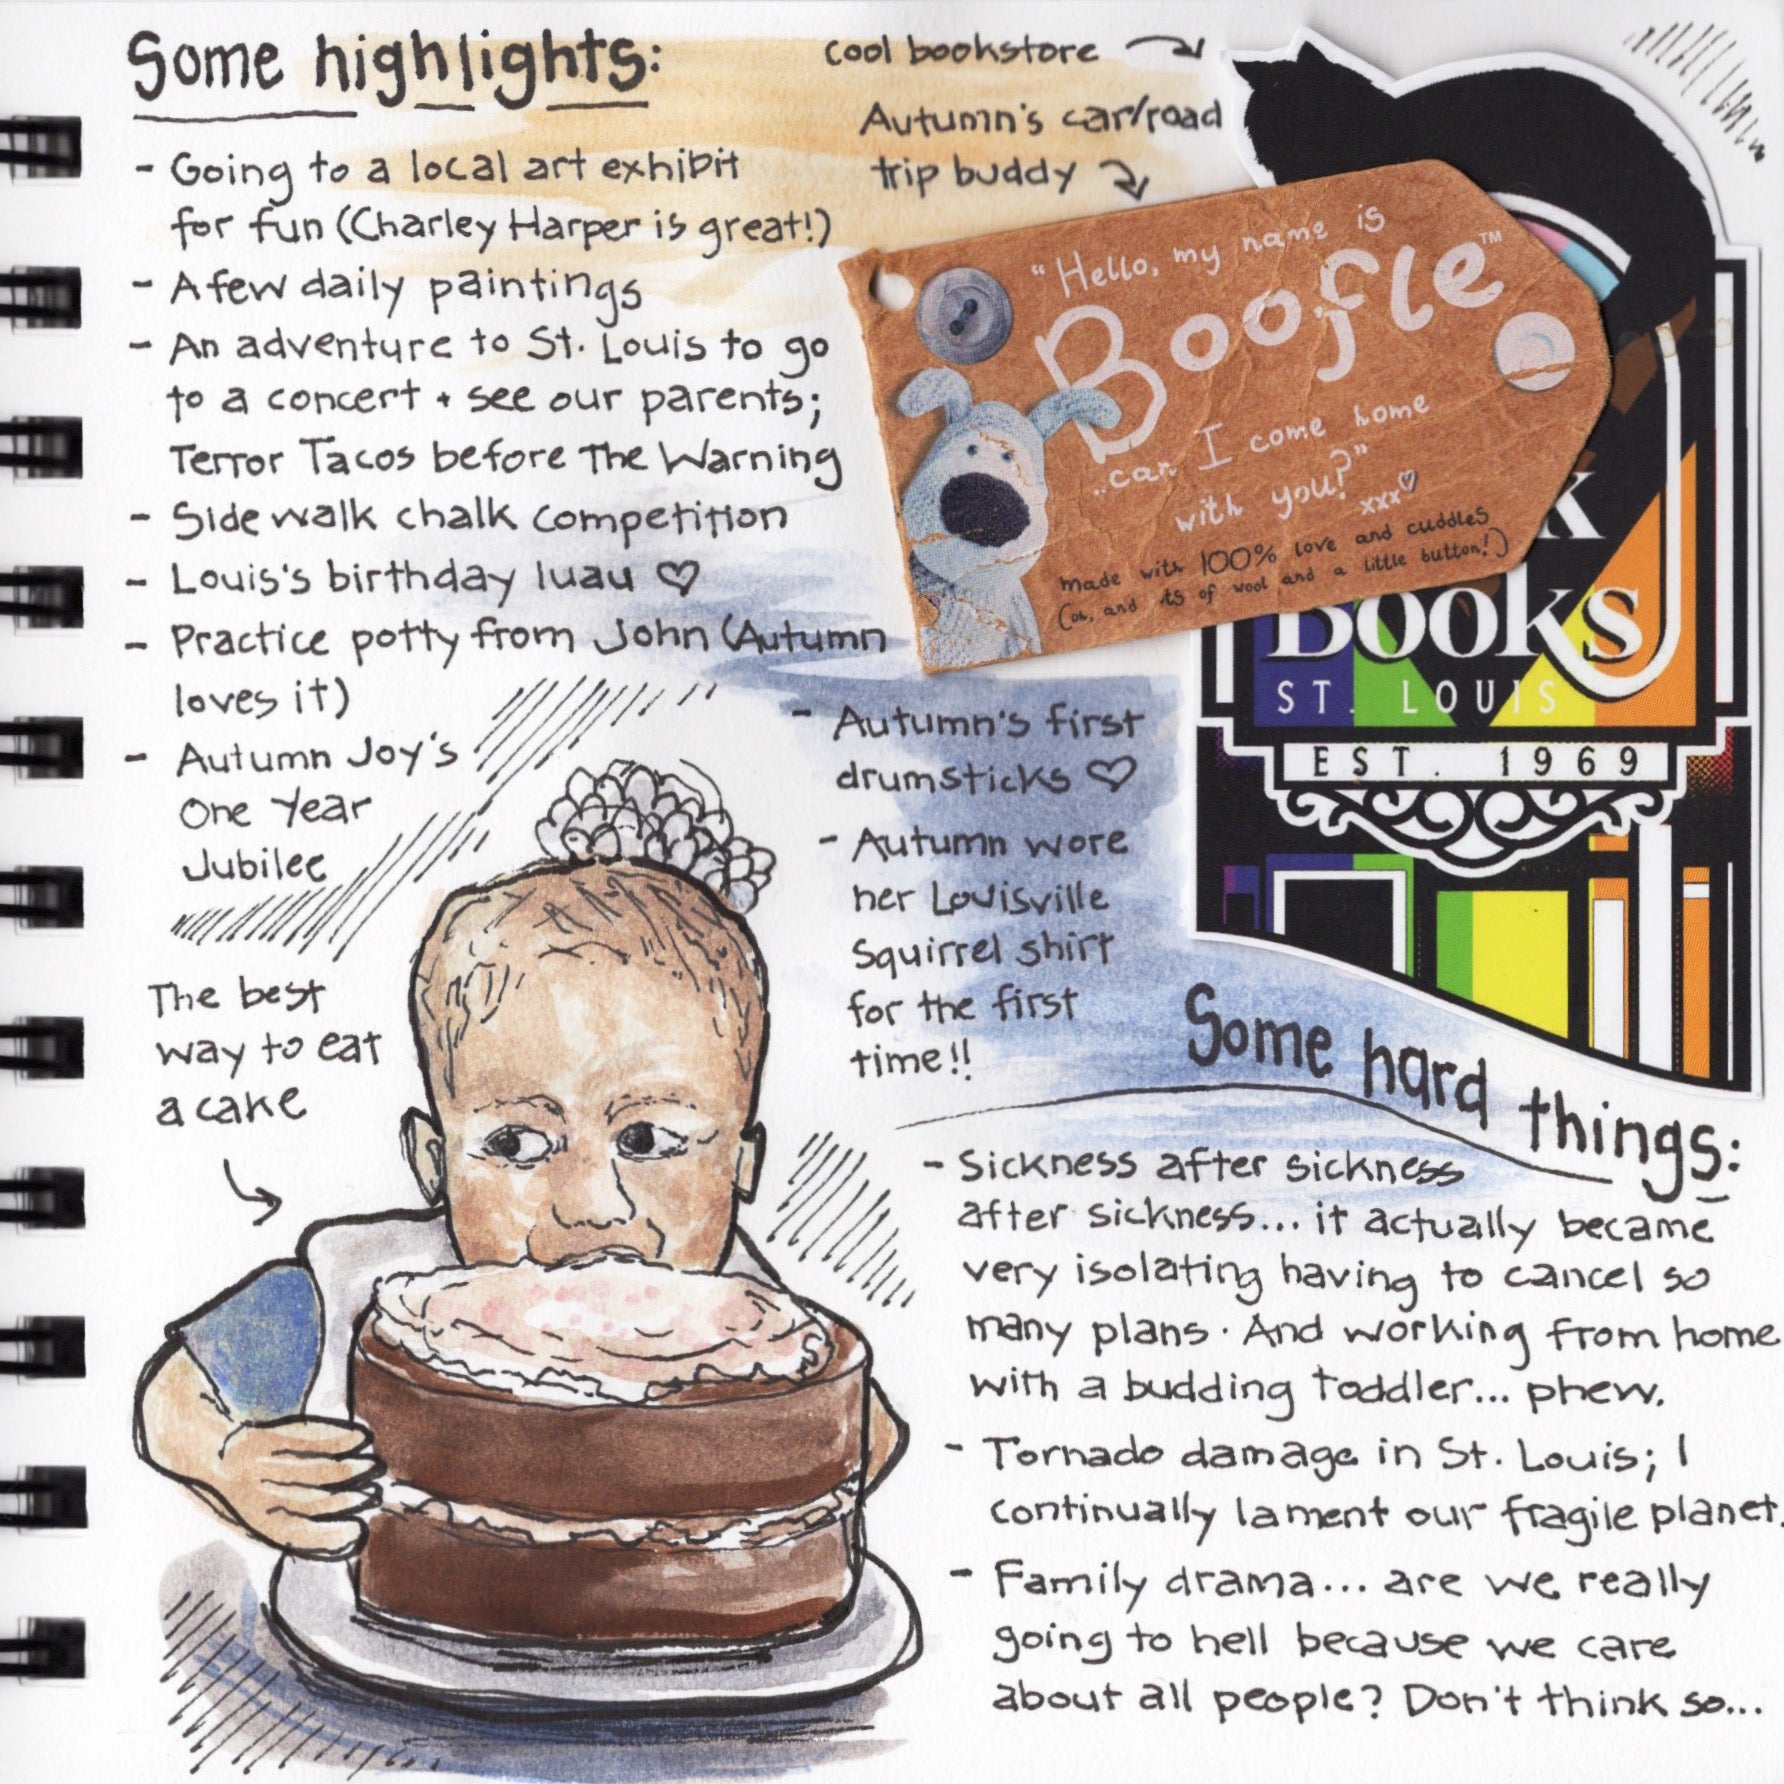 Some highlights:
- Going to a local art exhibit
for fun (Charley Harper is great!)
- A few daily paintings
- An adventure to St. Louis to go
to a concert + see our parents;
Terror Tacos before The Warning
- Sidewalk chalk competition
- Louis's birthday luau ♡
- Practice potty from John (Autumn
loves it)
- Autumn Joy's
One Year
Jubilee
The best
way to eat
a cake
cool bookstore
Autumn's car/road
trip buddy
"Hello, my name is
Boofle™
..can I come home
with you?"
xxx♡
made with 100% love and cuddles
(oh, and its of wool and a little button!)
K
Books
ST. LOUIS
EST. 1969
- Autumn's first
drumsticks ♡
- Autumn wore
her Louisville
Squirrel shirt
for the first
time!!
Some hard things:
- Sickness after sickness
after sickness... it actually became
very isolating having to cancel so
many plans. And working from home
with a budding toddler... phew.
- Tornado damage in St. Louis; I
continually lament our fragile planet.
- Family drama... are we really
going to hell because we care
about all people? Don't think so...